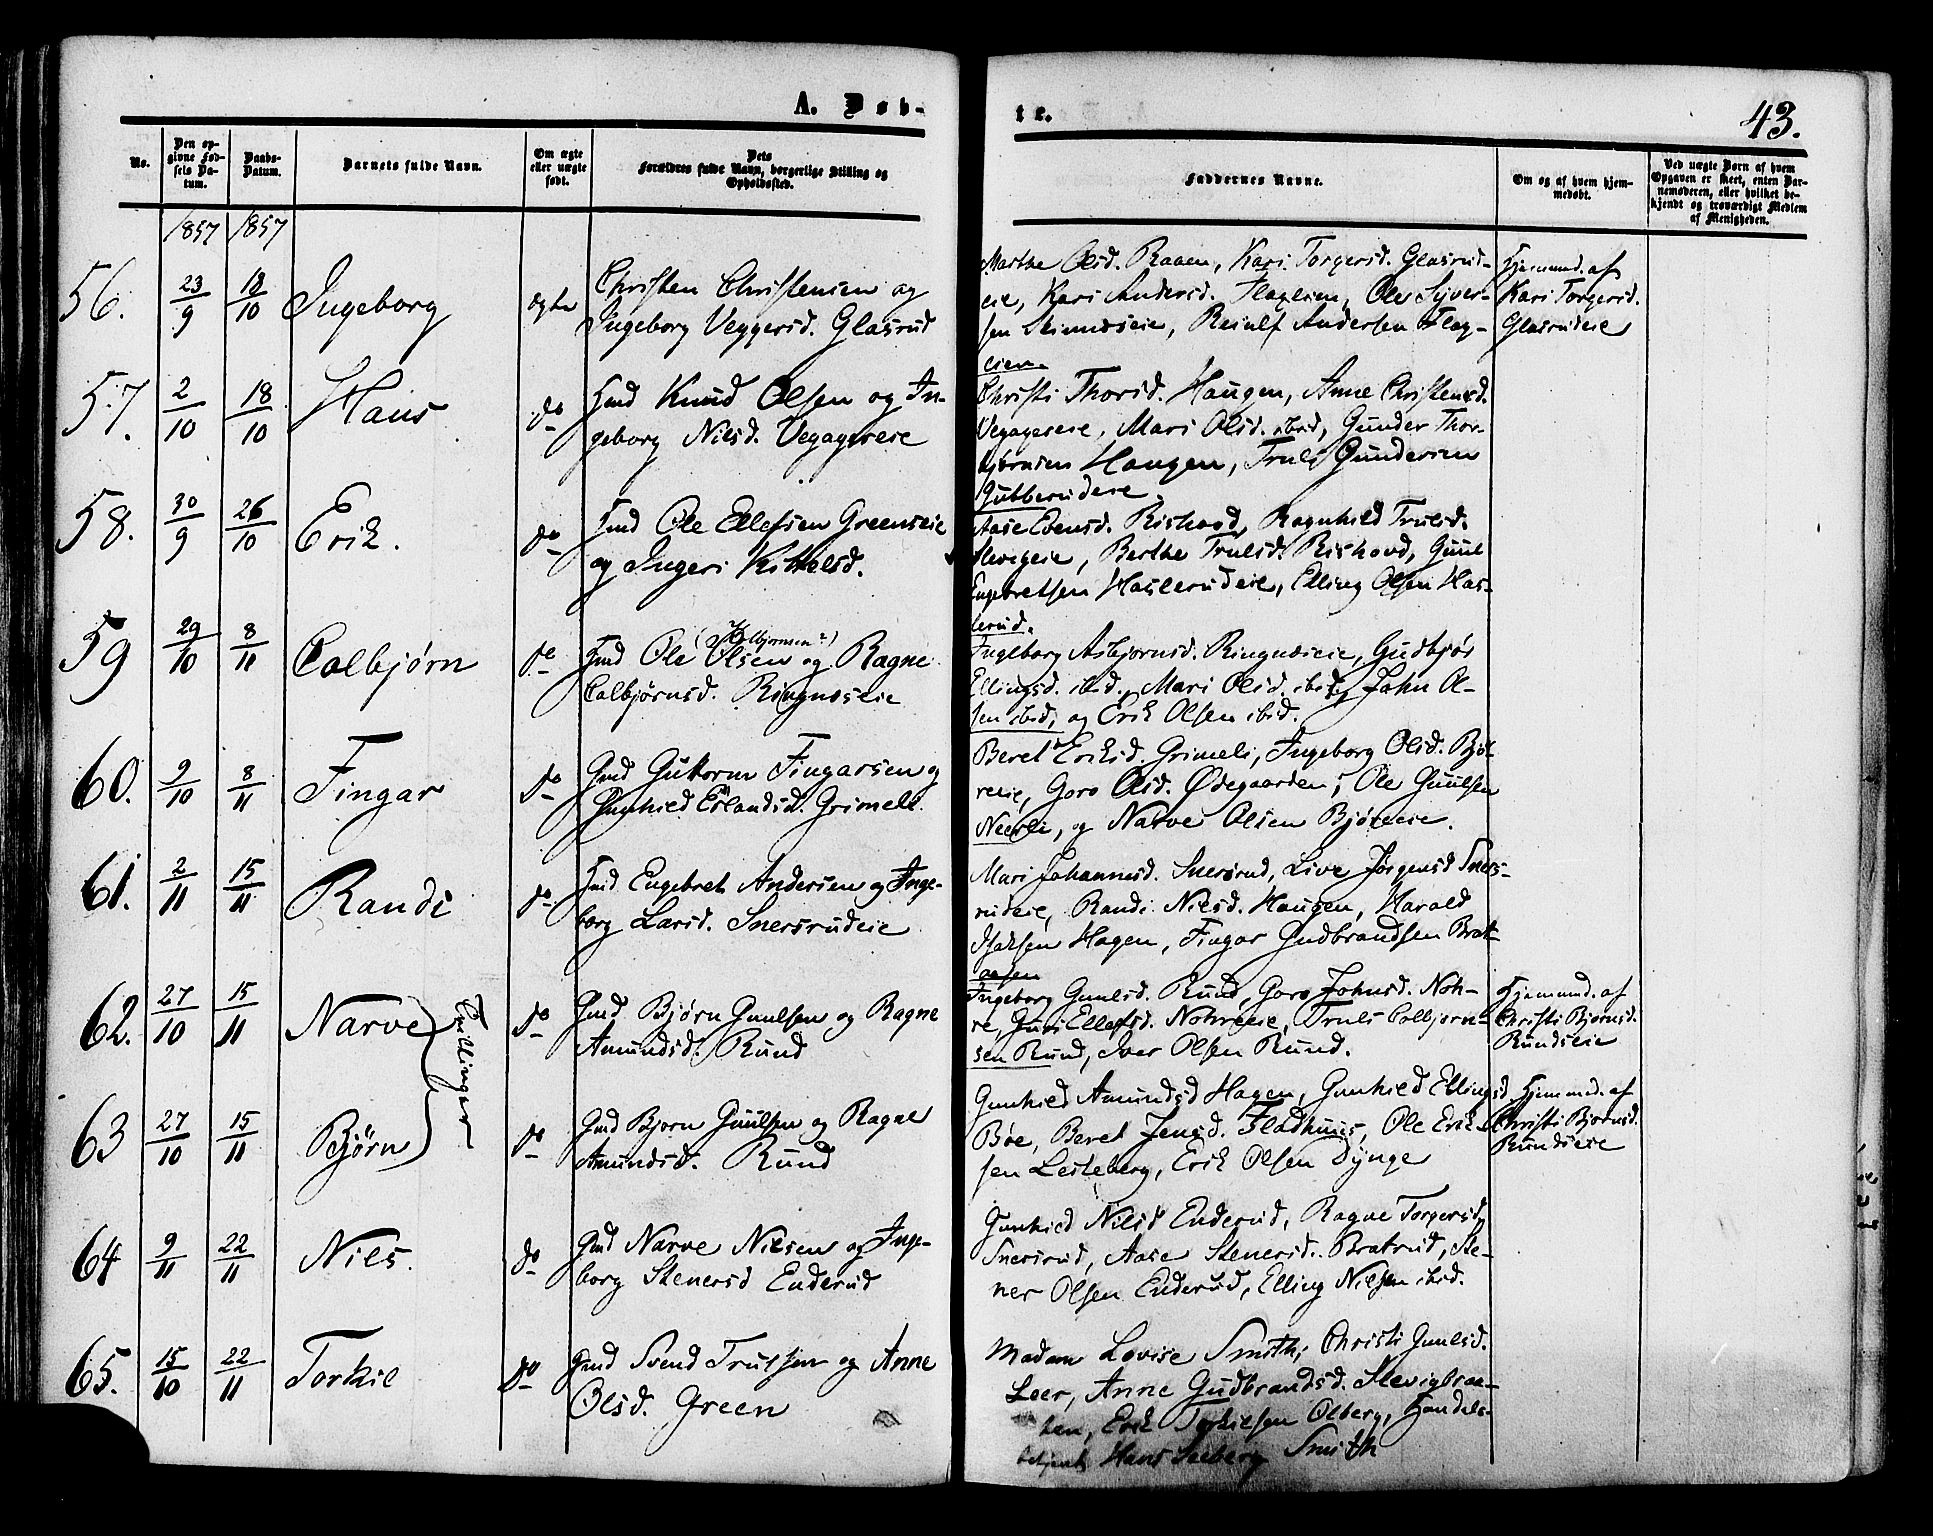 A. Døb-
te.
43.
No.
Den opgivne Fødsels Datum.
Daabs-Datum.
Barnets fulde Navn.
Om ægte eller uægte født.
Dets Forældres fulde Navn, borgerlige Stilling og Opholdssted.
Faddernes Navne.
Om og af hvem hjemmedøbt.
Ved uægte Børn af hvem Opgaven er skeet, enten Barnemoderen, eller hvilket bekjendt og troværdigt Medlem af Menigheden.
1857 1857
56. 23/9 18/10 Ingeborg ægte
Christen Christensen og
Ingeborg Veggersd. Glasrud
Marthe Olsd. Raaen, Kari Torgersd. Glasrud-
eie, Kari Andersd. Flaglien, Ole Syver-
sen Skinnæseie, Reiulf Andersen Flag-
lien.
Hjemmd. af
Kari Torgersd.
Glasrudeie
57. 2/10 18/10 Hans do
Hmd Knud Olsen og In-
geborg Nilsd. Veggereie
Christi Thorsd. Haugen, Anne Christensd.
Mari Olsd. ibid, Gunder Thor-
bjørnsen Haugen, Truls Gundersen
Gubberudeie
58. 30/9 26/10 Erik. do
Hmd Ole Ellefsen Greenseie
og Ingeri Kittelsd.
Aase Evensd. Rishovd, Ragnhild Trulsd.
Slevigeie, Berthe Trulsd. Rishovd, Guul
Engebretsen Haslerudeie, Elling Olsen Has-
lerud.
59 29/10 8/11 Colbjørn do
(Kolbjørnsen?)
Hmd Ole Olsen og Ragne
Colbjørnsd. Ringnæseie
Ingeborg Asbjørnsd. Ringnæseie, Gudbjør
Ellingsd. ibid., Mari Olsd. ibid, John Ol-
sen ibid, og Erik Olsen ibid.
60. 9/10 8/11 Fingar do
Gmd Guttorm Fingarsen og
Gunhild Erlandsd. Grimeli.
Beret Eriksd. Grimeli, Ingeborg Olsd. Bjø-
reeie, Goro Olsd. Ødegaarden, Ole Guulsen
Neerli, og Narve Olsen Bjøreeie.
61. 2/11 15/11 Randi do
Hmd. Engebret Andersen og Inge-
borg Larsd. Snersrudeie
Mari Johannesd. Snersrud, Live Jørgensd Sners-
rudeie, Randi Nilsd. Haugen, Harald
Isaksen Hagen, Fingar Gudbrandsen Brat-
aasen
62. 27/10 15/11 Narve do
Tvillinger
Gmd Bjørn Guulsen og Ragne
Amundsd. Rund
Ingeborg Guulsd. Rund, Goro Johnsd. Noh-
re, Guri Ellefsd. Nohreeie, Truls Colbjørn-
sen Rund, Iver Olsen Rund.
Hjemmd. af
Christi Bjørnsd.
Rundseie
63 27/10 15/11 Bjørn do
Gmd Bjørn Guulsen og Ragne
Amundsd. Rund
Gunhild Amundsd Hagen, Gunhild Ellingsd
Bøe, Beret Jensd. Fladhuus, Ole Erik-
sen Lesteberg, Erik Olsen Dynge
Hjemmd. af
Christi Bjørnsd.
Rundseie
64 9/11 22/11 Niels. do
Gmd Narve Nilsen og Inge-
borg Stenersd Enderud
Gunhild Nilsd Enderud, Ragne Torgersd
Snersrud, Aase Stenersd. Bratrud, Ste-
ner Olsen Enderud, Elling Nilsen ibid.
65. 15/10 22/11 Torkil do
Gmd Svend Trulsen og Anne
Olsd. Green
Madam Lovise Smith, Christi Guulsd.
Leer, Anne Gudbrandsd. Slevigbraa-
ten, Erik Torkilsen Olberg, Handels-
betjent Hans Seeberg Smith